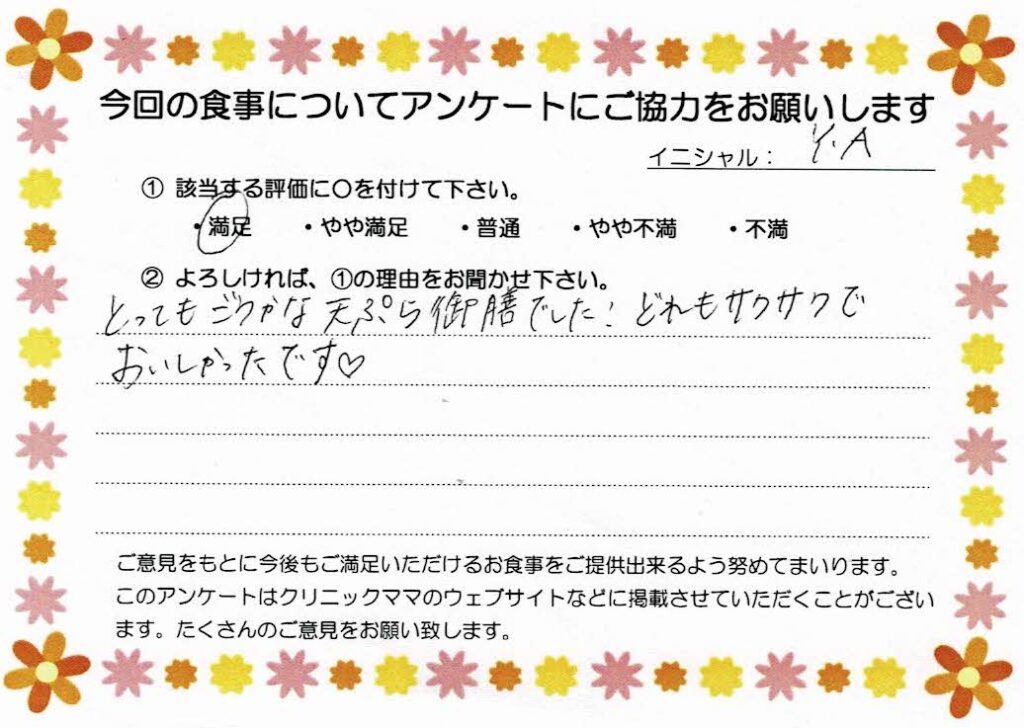 今回の食事についてアンケートにご協力をお願いします
イニシャル： Y.A
① 該当する評価に〇を付けて下さい。
・満足 ・やや満足 ・普通 ・やや不満 ・不満
② よろしければ、①の理由をお聞かせ下さい。
とってもごうかな天ぷら御膳でした！どれもサクサクで
おいしかったです♡
ご意見をもとに今後もご満足いただけるお食事をご提供出来るよう努めてまいります。
このアンケートはクリニックママのウェブサイトなどに掲載させていただくことがござい
ます。たくさんのご意見をお願い致します。